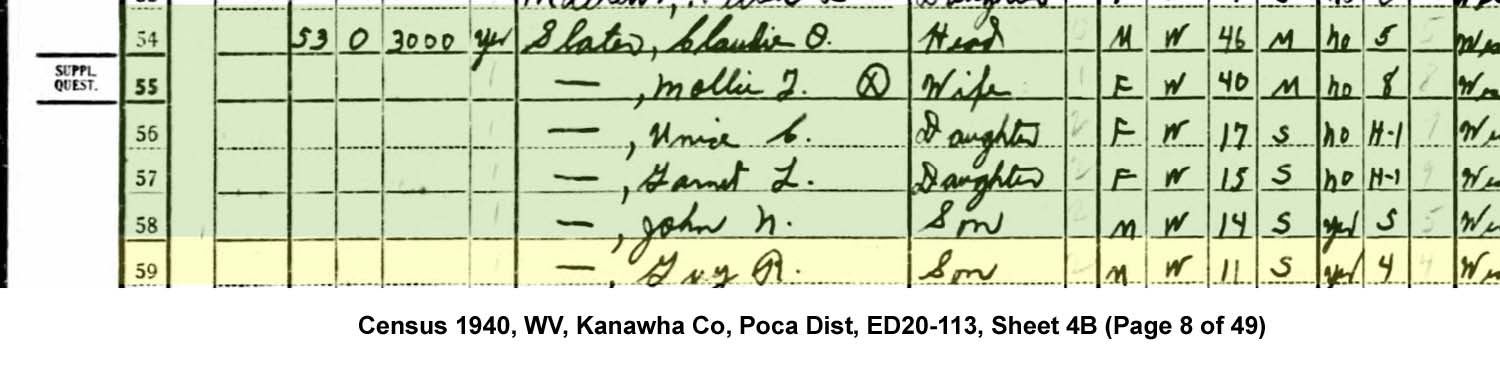 54 53 0 3000 yes Slater, Claudie O. Head M W 46 M no 5 5
SUPPL. QUEST. 55 — , Mollie J. Ⓧ Wife F W 40 M no 8
56 — , Unice C. Daughter F W 17 S no H-1
57 — , Garnet L. Daughter F W 15 S no H-1
58 — , John N. Son M W 14 S yes 5 5
59 — , Guy R. Son M W 11 S yes 4 4
Census 1940, WV, Kanawha Co, Poca Dist, ED20-113, Sheet 4B (Page 8 of 49)